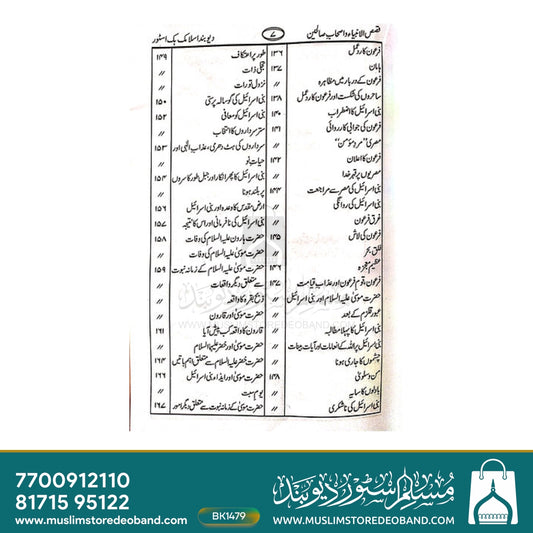 قصص الانبیاء و اصحاب صالحین
۷
دیوبند اسلامک بک اسٹور
فرعون کا رد عمل ۱۳۶
ہامان ۱۳۷
فرعون کے دربار میں مظاہرہ //
ساحروں کی شکست اور فرعون کا رد عمل ۱۳۸
بنی اسرائیل کا اضطراب ۱۴۰
فرعون کی جوابی کارروائی ۱۴۱
مصری "مرد مؤمن" //
فرعون کا اعلان ۱۴۲
مصریوں پر قہر خدا //
بنی اسرائیل کی مصر سے مراجعت ۱۴۴
بنی اسرائیل کی روانگی //
غرق فرعون //
فرعون کی لاش ۱۴۵
فلق بحر //
عظیم معجزہ ۱۴۶
فرعون، قوم فرعون اور عذاب قیامت ۱۴۷
حضرت موسیٰ علیہ السلام اور بنی اسرائیل //
عبور قلزم کے بعد //
بنی اسرائیل کا پہلا مطالبہ //
بنی اسرائیل پر اللہ کے انعامات اور آیات بینات //
چشموں کا جاری ہونا //
من و سلویٰ ۱۴۸
بادلوں کا سایہ //
بنی اسرائیل کی ناشکری //
طور پر اعتکاف ۱۴۹
تجلی ذات //
نزول تورات //
بنی اسرائیل کی گوسالہ پرستی ۱۵۰
بنی اسرائیل کو معافی ۱۵۲
ستر سرداروں کا انتخاب //
سرداروں کی ہٹ دھرمی، عذاب الٰہی اور ۱۵۳
حیات نو //
بنی اسرائیل کا پھر انکار اور جبل طور کا سروں ۱۵۴
پر بلند ہونا //
ارض مقدس کا وعدہ اور بنی اسرائیل ۱۵۶
بنی اسرائیل کی نافرمانی اور اس کا نتیجہ ۱۵۷
حضرت ہارون علیہ السلام کی وفات ۱۵۸
حضرت موسیٰ علیہ السلام کی وفات //
حضرت موسیٰ علیہ السلام کے زمانہ نبوت ۱۵۹
سے متعلق دیگر واقعات //
ذبح بقرہ کا واقعہ //
حضرت موسیٰ اور قارون //
قارون کا واقعہ کب پیش آیا ۱۶۱
حضرت موسیٰ اور خضر علیہما السلام //
حضرت خضر علیہ السلام سے متعلق اہم باتیں ۱۶۴
حضرت موسیٰ اور ایذاء بنی اسرائیل ۱۶۶
یوم سبت //
حضرت موسیٰ کے زمانہ نبوت سے متعلق دیگر امور ۱۶۷
مسلم سٹور دیوبند
WWW.MUSLIMSTOREDEOBAND.COM
7700912110
81715 95122
www.muslimstoredeoband.com
BK1479
مسلم سٹور دیوبند
WWW.MUSLIMSTOREDEOBAND.COM